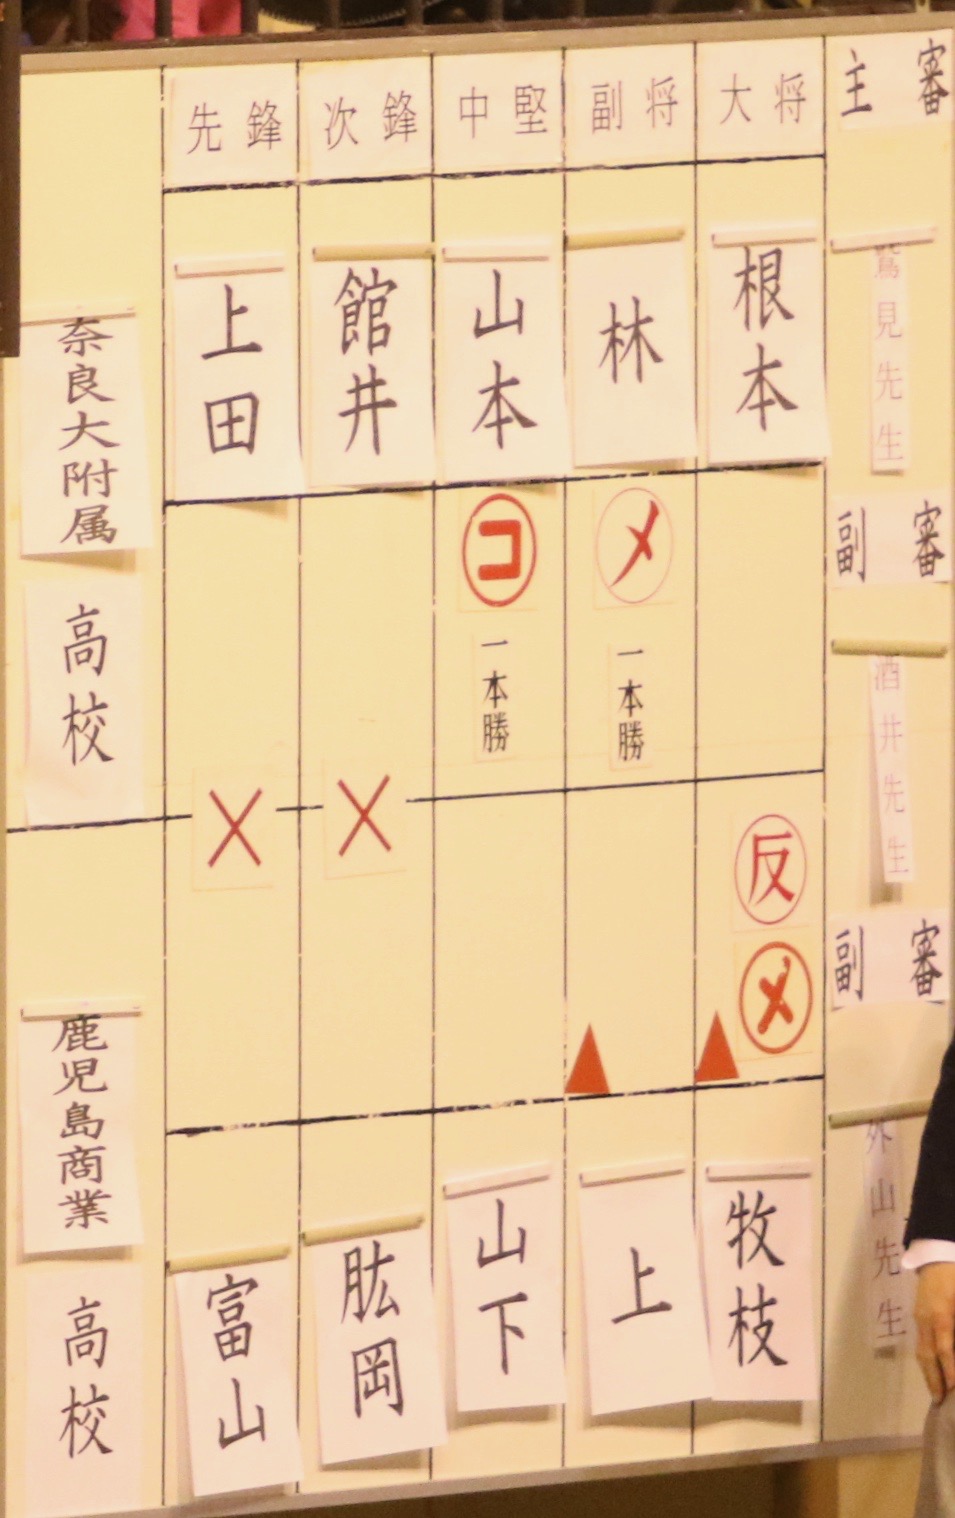 先鋒
次鋒
中堅
副将
大将
主審
奈良大附属
高校
上田
館井
山本
林
根本
鷲見先生
コ
一本勝
メ
一本勝
副審
酒井先生
反
メ
副審
外山先生
鹿児島商業
高校
富山
肱岡
山下
上
牧枝